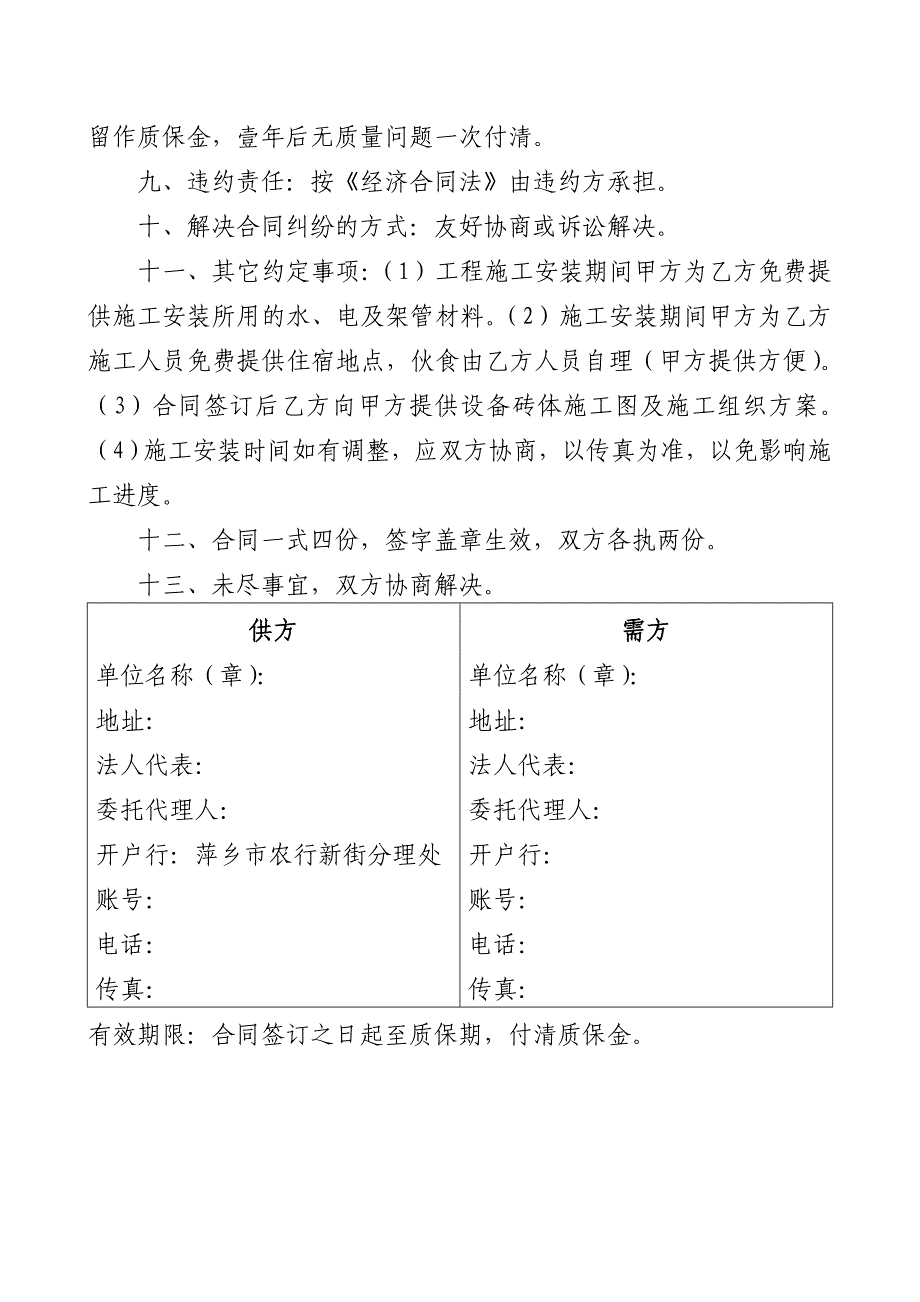 留作质保金，壹年后无质量问题一次付清。
九、违约责任：按《经济合同法》由违约方承担。
十、解决合同纠纷的方式：友好协商或诉讼解决。
十一、其它约定事项：（1）工程施工安装期间甲方为乙方免费提
供施工安装所用的水、电及架管材料。（2）施工安装期间甲方为乙方
施工人员免费提供住宿地点，伙食由乙方人员自理（甲方提供方便）。
（3）合同签订后乙方向甲方提供设备砖体施工图及施工组织方案。
（4）施工安装时间如有调整，应双方协商，以传真为准，以免影响施
工进度。
十二、合同一式四份，签字盖章生效，双方各执两份。
十三、未尽事宜，双方协商解决。
供方
单位名称（章）：
地址：
法人代表：
委托代理人：
开户行：萍乡市农行新街分理处
账号：
电话：
传真：
需方
单位名称（章）：
地址：
法人代表：
委托代理人：
开户行：
账号：
电话：
传真：
有效期限：合同签订之日起至质保期，付清质保金。